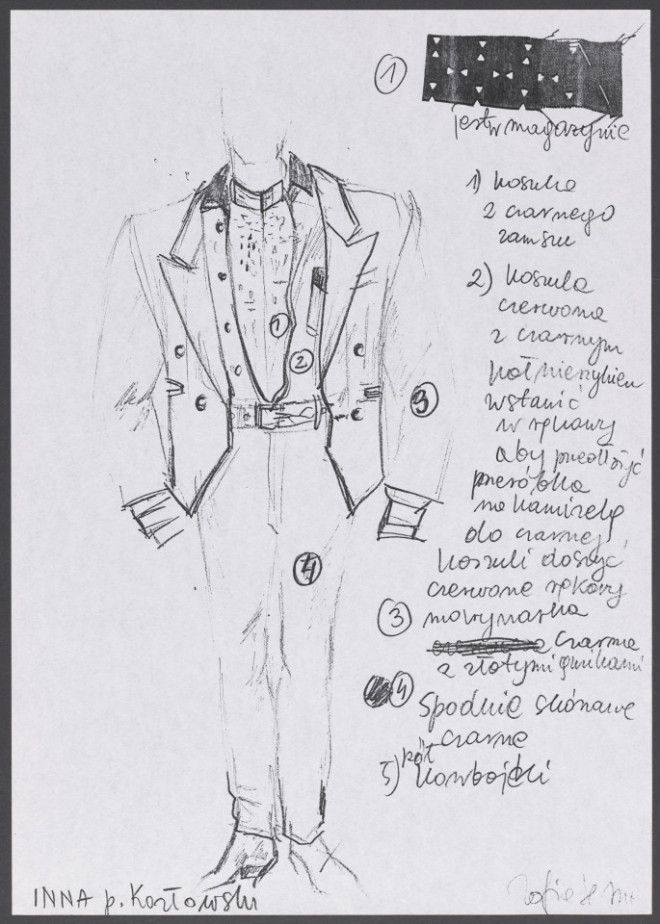 1
jest w magazynie
1) koszula
z czarnego
zamszu
2) koszula
czerwona
z czarnym
wstawić
w rękawy
aby przedłużyć
przeróbka
na kamizelę
do czarnej
koszuli doszyć
czerwone rękawy
3 marynarka
czarna
z złotymi guzikami
4 Spodnie skórzane
czarne
5) kowbojki
pół
1
2
3
4
INNA p. Kozłowski